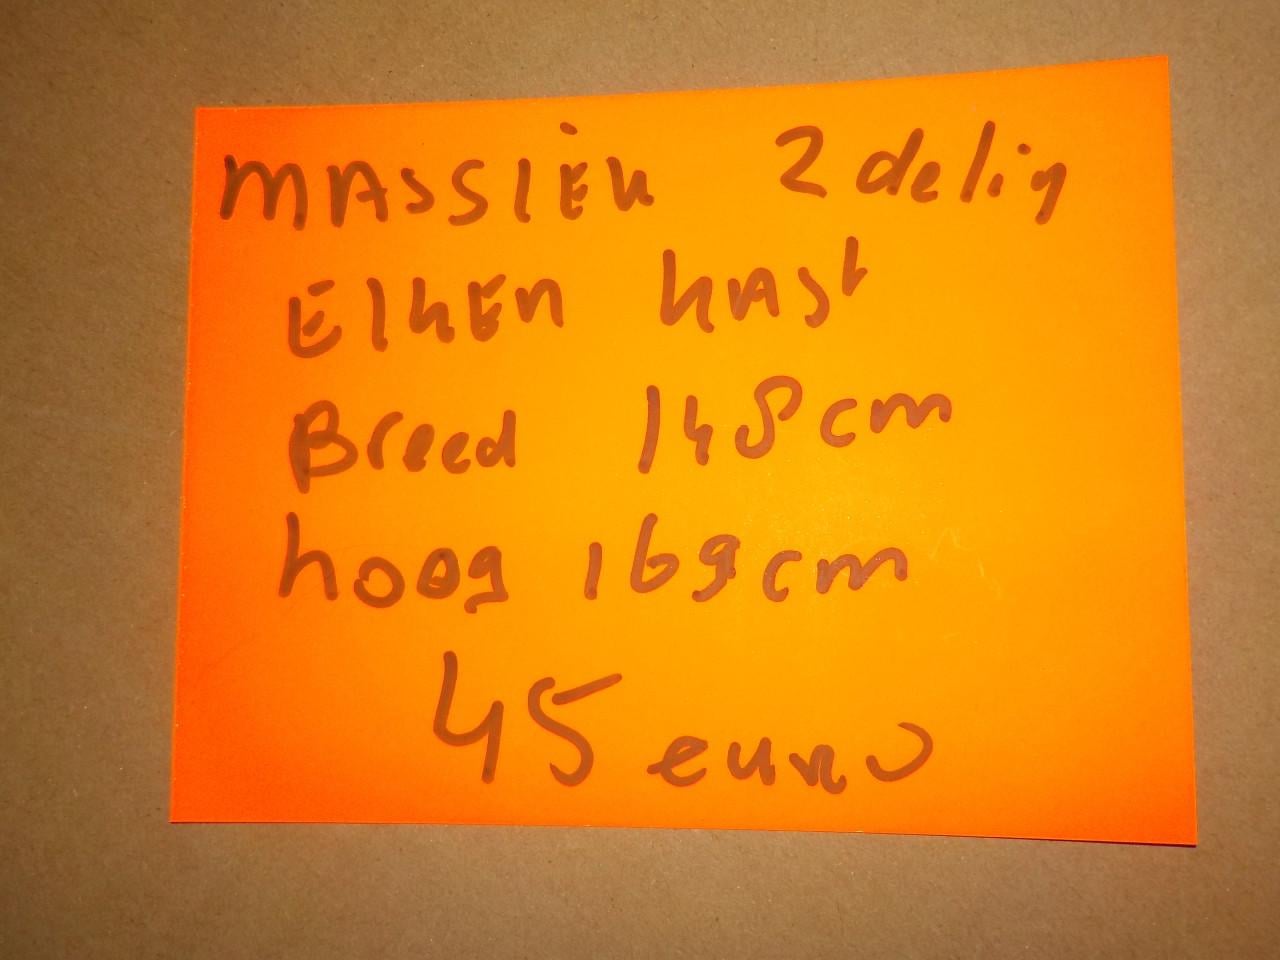 MASSIEK 2 delig
EIKEN KAST
Breed 148 cm
hoog 169 cm
45 euro